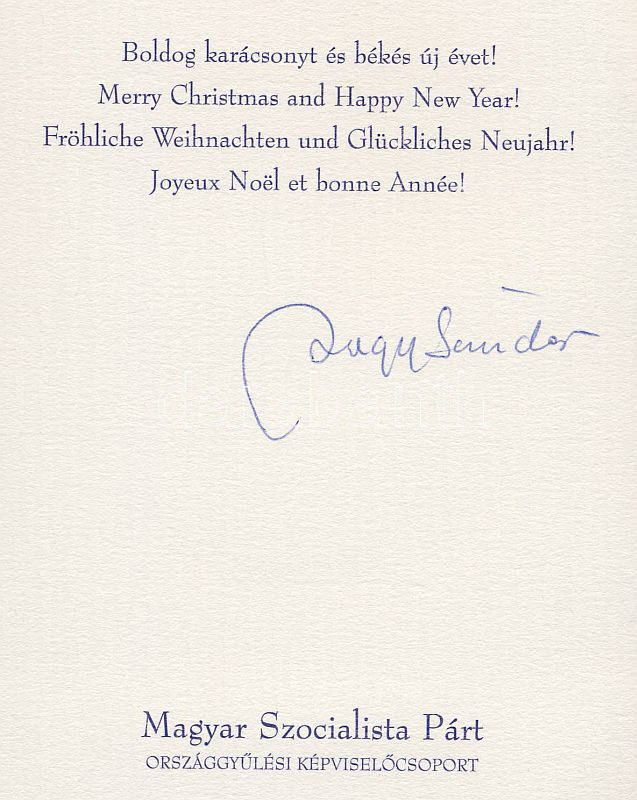 Boldog karácsonyt és békés új évet!
Merry Christmas and Happy New Year!
Fröhliche Weihnachten und Glückliches Neujahr!
Joyeux Noël et bonne Année!
Nagy Sándor
Magyar Szocialista Párt
ORSZÁGGYŰLÉSI KÉPVISELŐCSOPORT